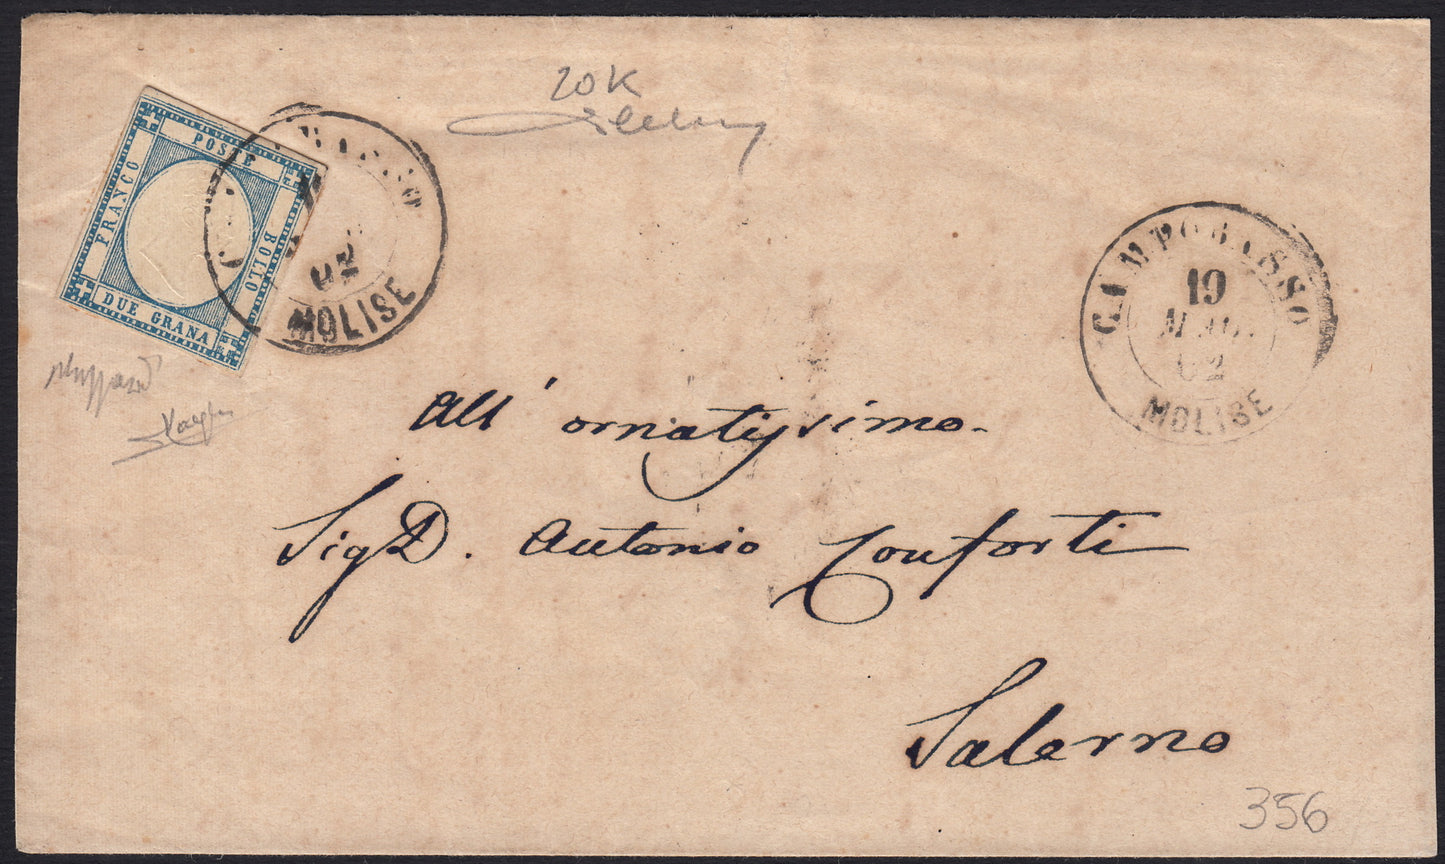 20K
FRANCO
POSTE
BOLLO
DUE GRANA
MOLISE
CAMPOBASSO
19
MAG.
62
MOLISE
All' ornatissimo
Sig D. Antonio Conforti
Salerno
356